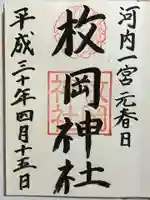 河内一宮元春日
枚岡神社
平成三十年四月十五日